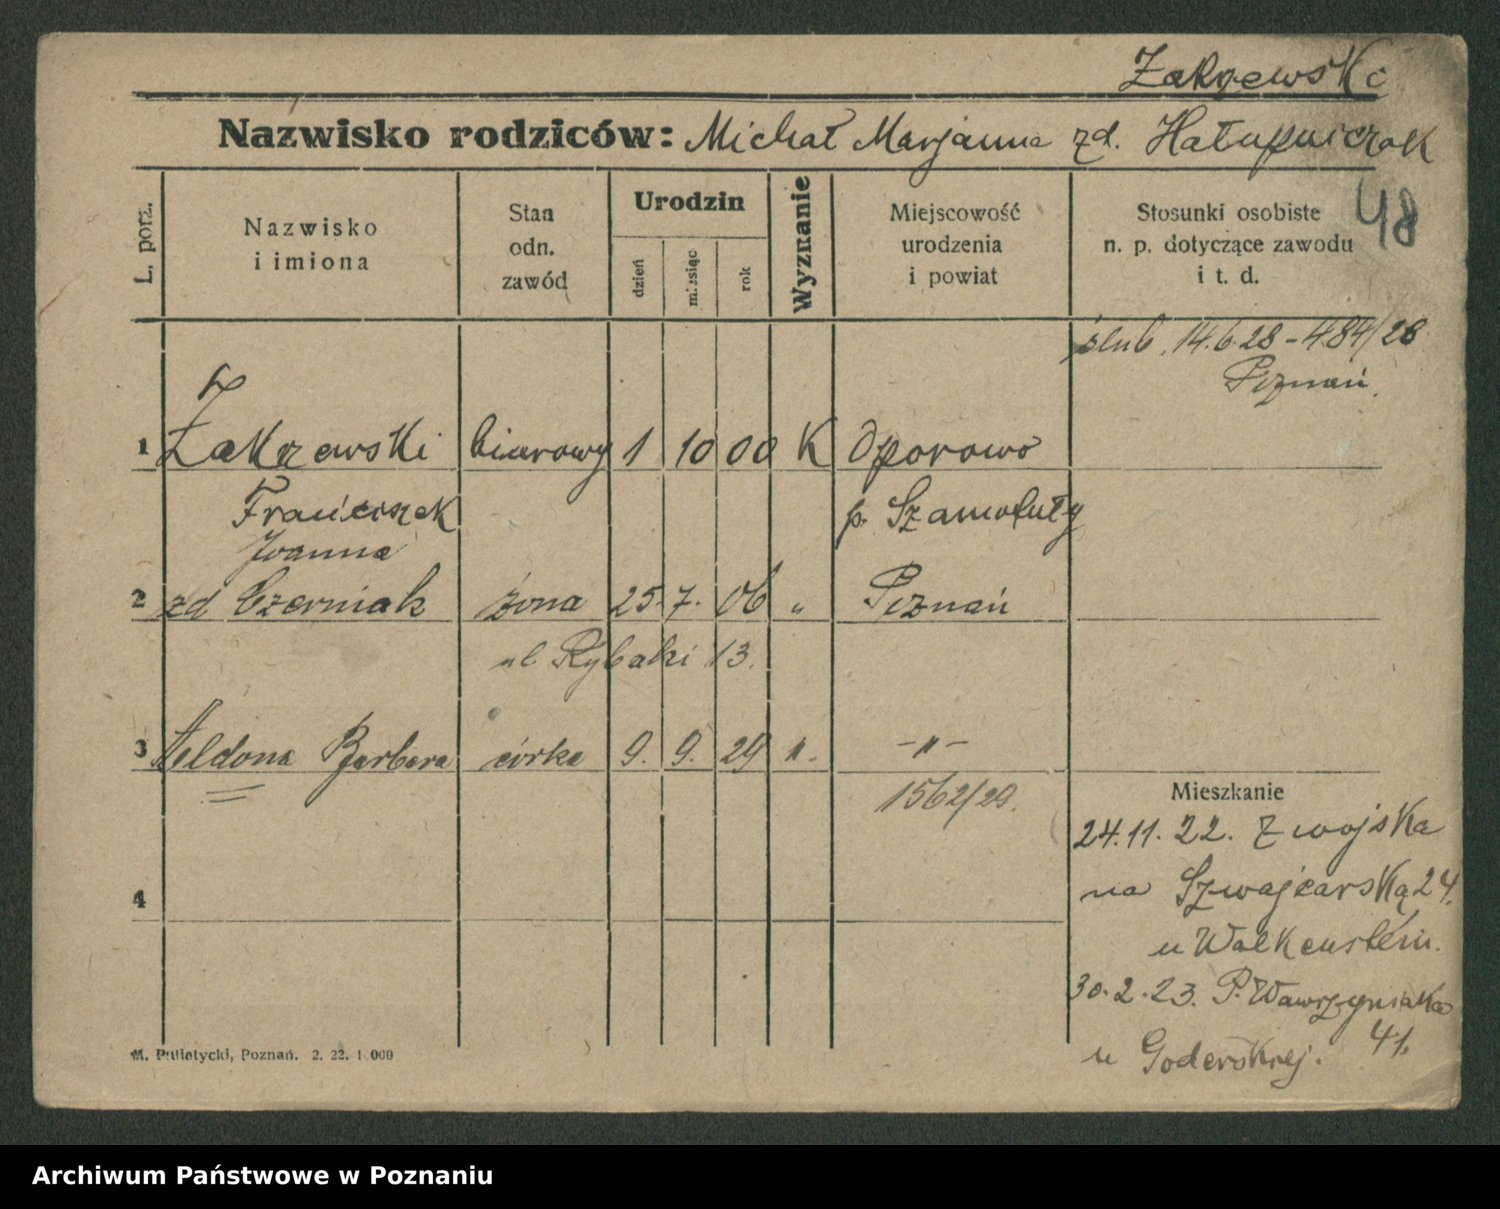 Zakrzewski
Nazwisko rodziców: Michał Marjanna zd. Hałupniczak
48
L. porz.
Nazwisko i imiona
Stan odn. zawód
Urodzin
dzień
miesiąc
rok
Wyznanie
Miejscowość urodzenia i powiat
Stosunki osobiste n. p. dotyczące zawodu i t. d.
ślub. 14.6.28 - 484/28
Poznań.
1 Zakrzewski biurowy 1 10 00 K Oporowo
Franciszek p. Szamotuły
Joanna
2 zd. Czerniak żona 25. 7. 06 " Poznań
ul Rybaki 13.
3 Aldona Barbara córka 9. 9. 29 "- -"-
1562/29.
Mieszkanie
24.11.22. Z wojska
na Szwajcarską 24.
4
u Walkenstein.
30.2.23. P. Wawrzyniaka
41.
u Goderskiej.
M. Putiatycki, Poznań. 2. 22. 1 000
Archiwum Państwowe w Poznaniu